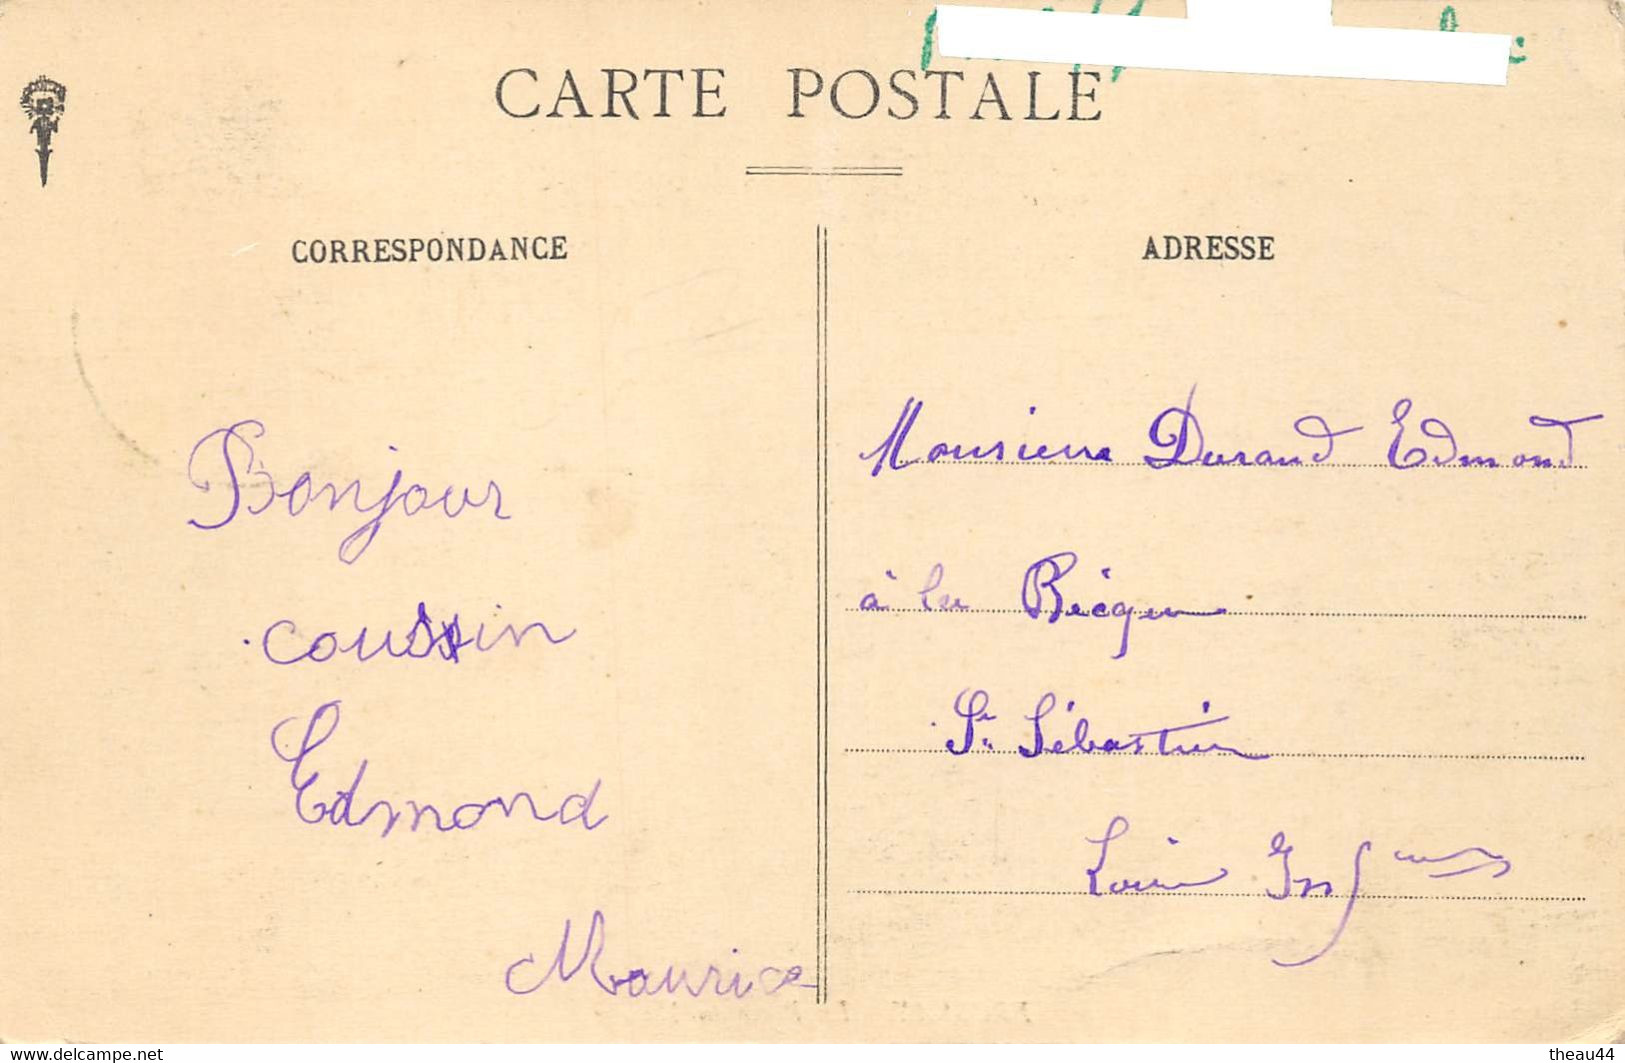 CARTE POSTALE
CORRESPONDANCE
Bonjour
coussin
Edmond
Maurice
ADRESSE
Monsieur Durand Edmond
à la Bècque
St Sébastien
Loire Infre
theau44